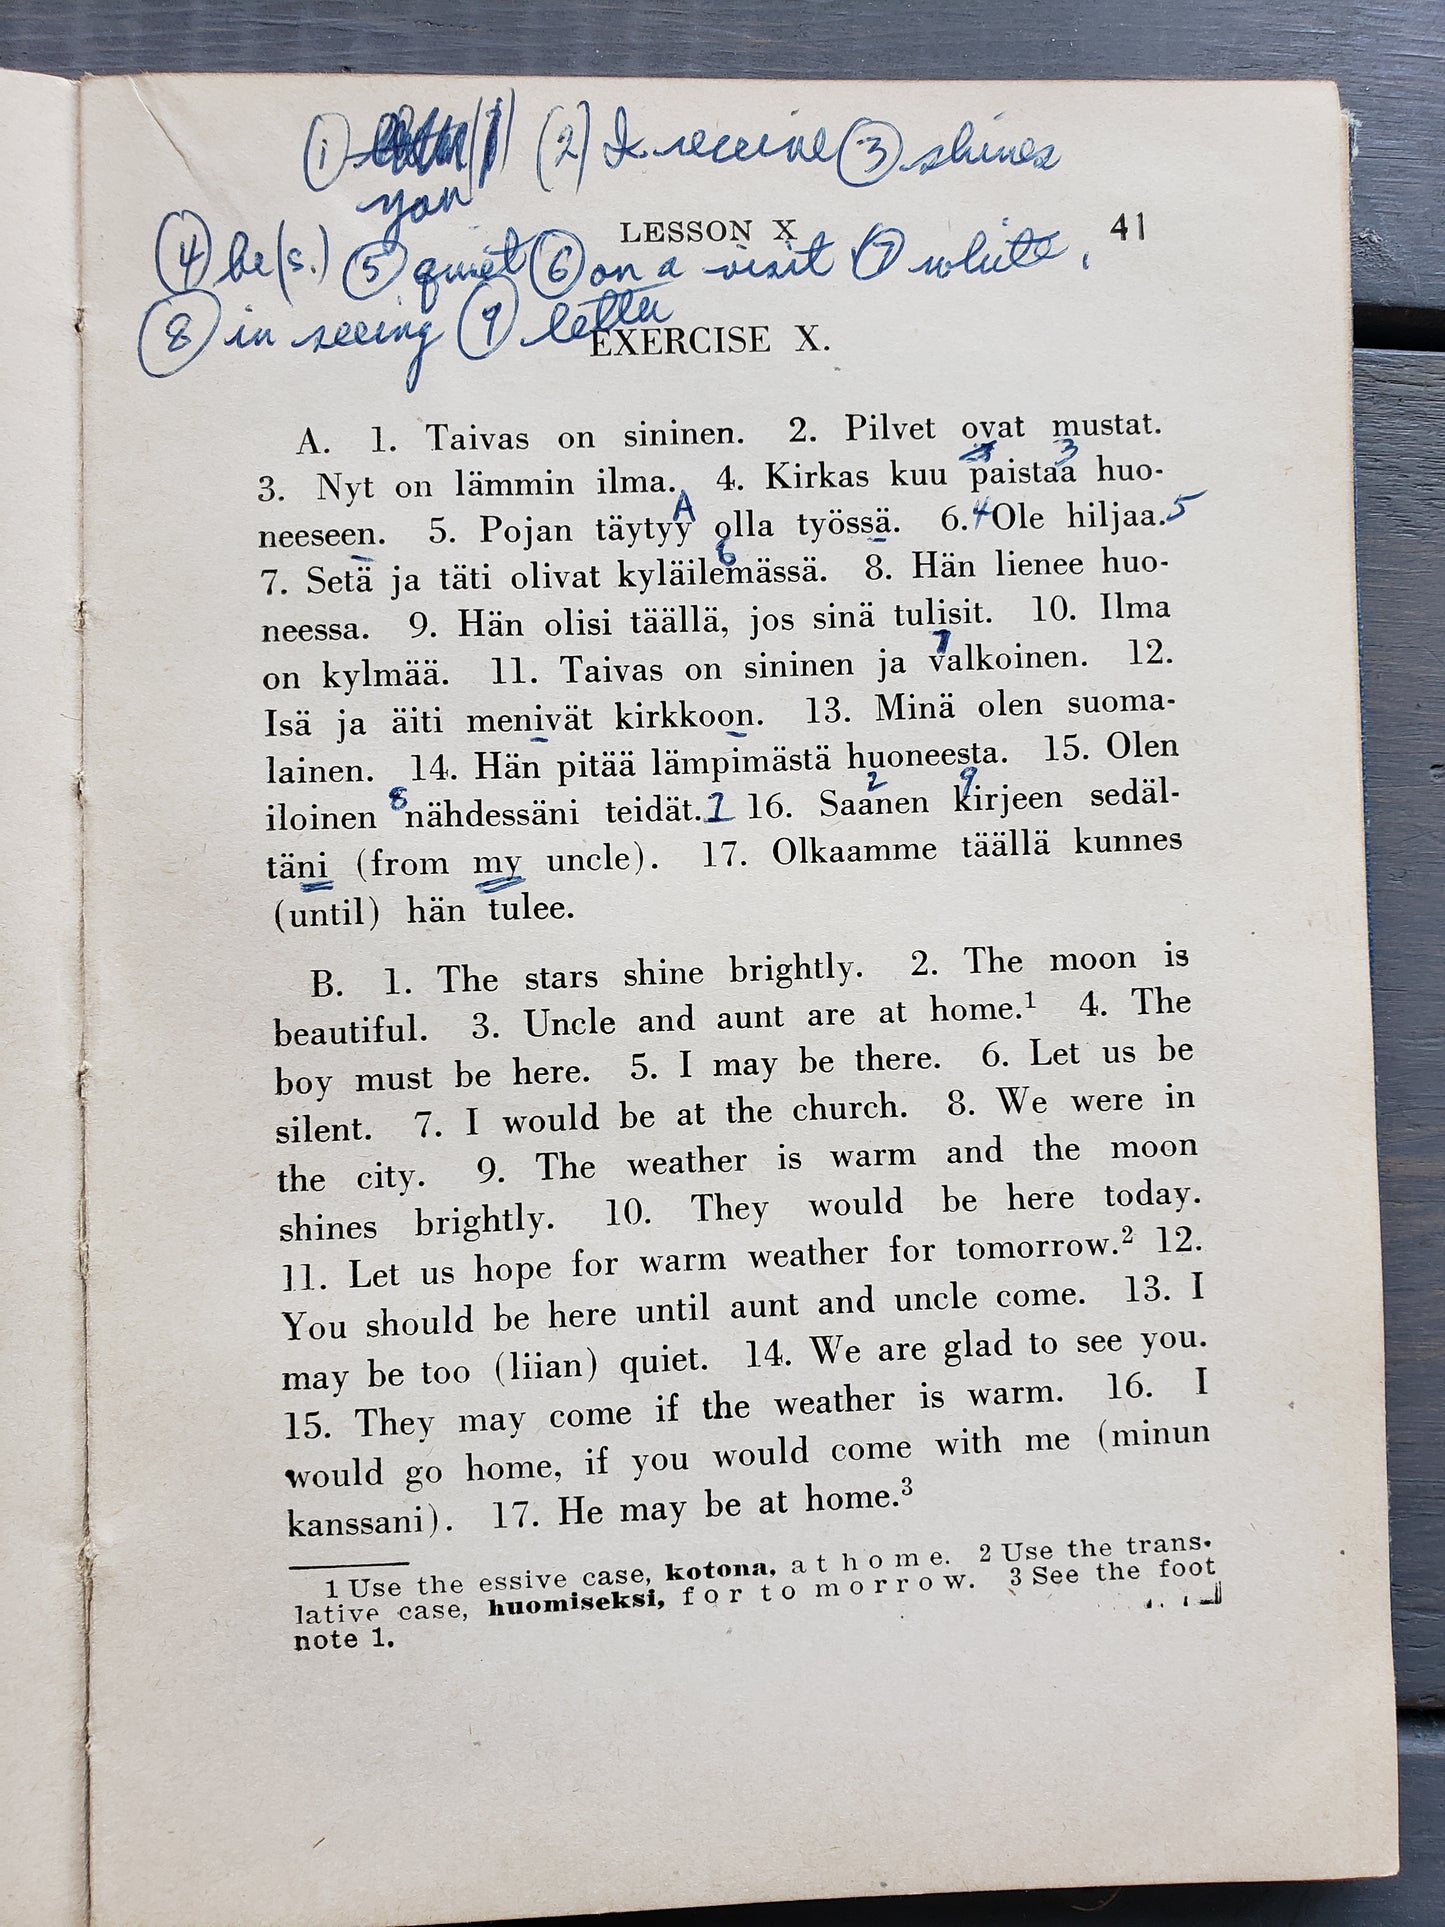 ① you (2) I receive ③ shines
④ be (s.) ⑤ quiet ⑥ on a visit ⑦ white,
LESSON X 41
⑧ in seeing ⑨ letter
EXERCISE X.
A. 1. Taivas on sininen. 2. Pilvet ovat mustat.
3
3. Nyt on lämmin ilma. 4. Kirkas kuu paistaa huo-
neeseen. 5. Pojan täytyy olla työssä. 6. 4 Ole hiljaa. 5
6
7. Setä ja täti olivat kyläilemässä. 8. Hän lienee huo-
neessa. 9. Hän olisi täällä, jos sinä tulisit. 10. Ilma
7
on kylmää. 11. Taivas on sininen ja valkoinen. 12.
Isä ja äiti menivät kirkkoon. 13. Minä olen suoma-
lainen. 14. Hän pitää lämpimästä huoneesta. 15. Olen
8 2 9
iloinen nähdessäni teidät. 1 16. Saanen kirjeen sedäl-
täni (from my uncle). 17. Olkaamme täällä kunnes
(until) hän tulee.
B. 1. The stars shine brightly. 2. The moon is
beautiful. 3. Uncle and aunt are at home.¹ 4. The
boy must be here. 5. I may be there. 6. Let us be
silent. 7. I would be at the church. 8. We were in
the city. 9. The weather is warm and the moon
shines brightly. 10. They would be here today.
11. Let us hope for warm weather for tomorrow.² 12.
You should be here until aunt and uncle come. 13. I
may be too (liian) quiet. 14. We are glad to see you.
15. They may come if the weather is warm. 16. I
would go home, if you would come with me (minun
kanssani). 17. He may be at home.³
1 Use the essive case, kotona, at home. 2 Use the trans-
lative case, huomiseksi, for tomorrow. 3 See the foot
note 1.